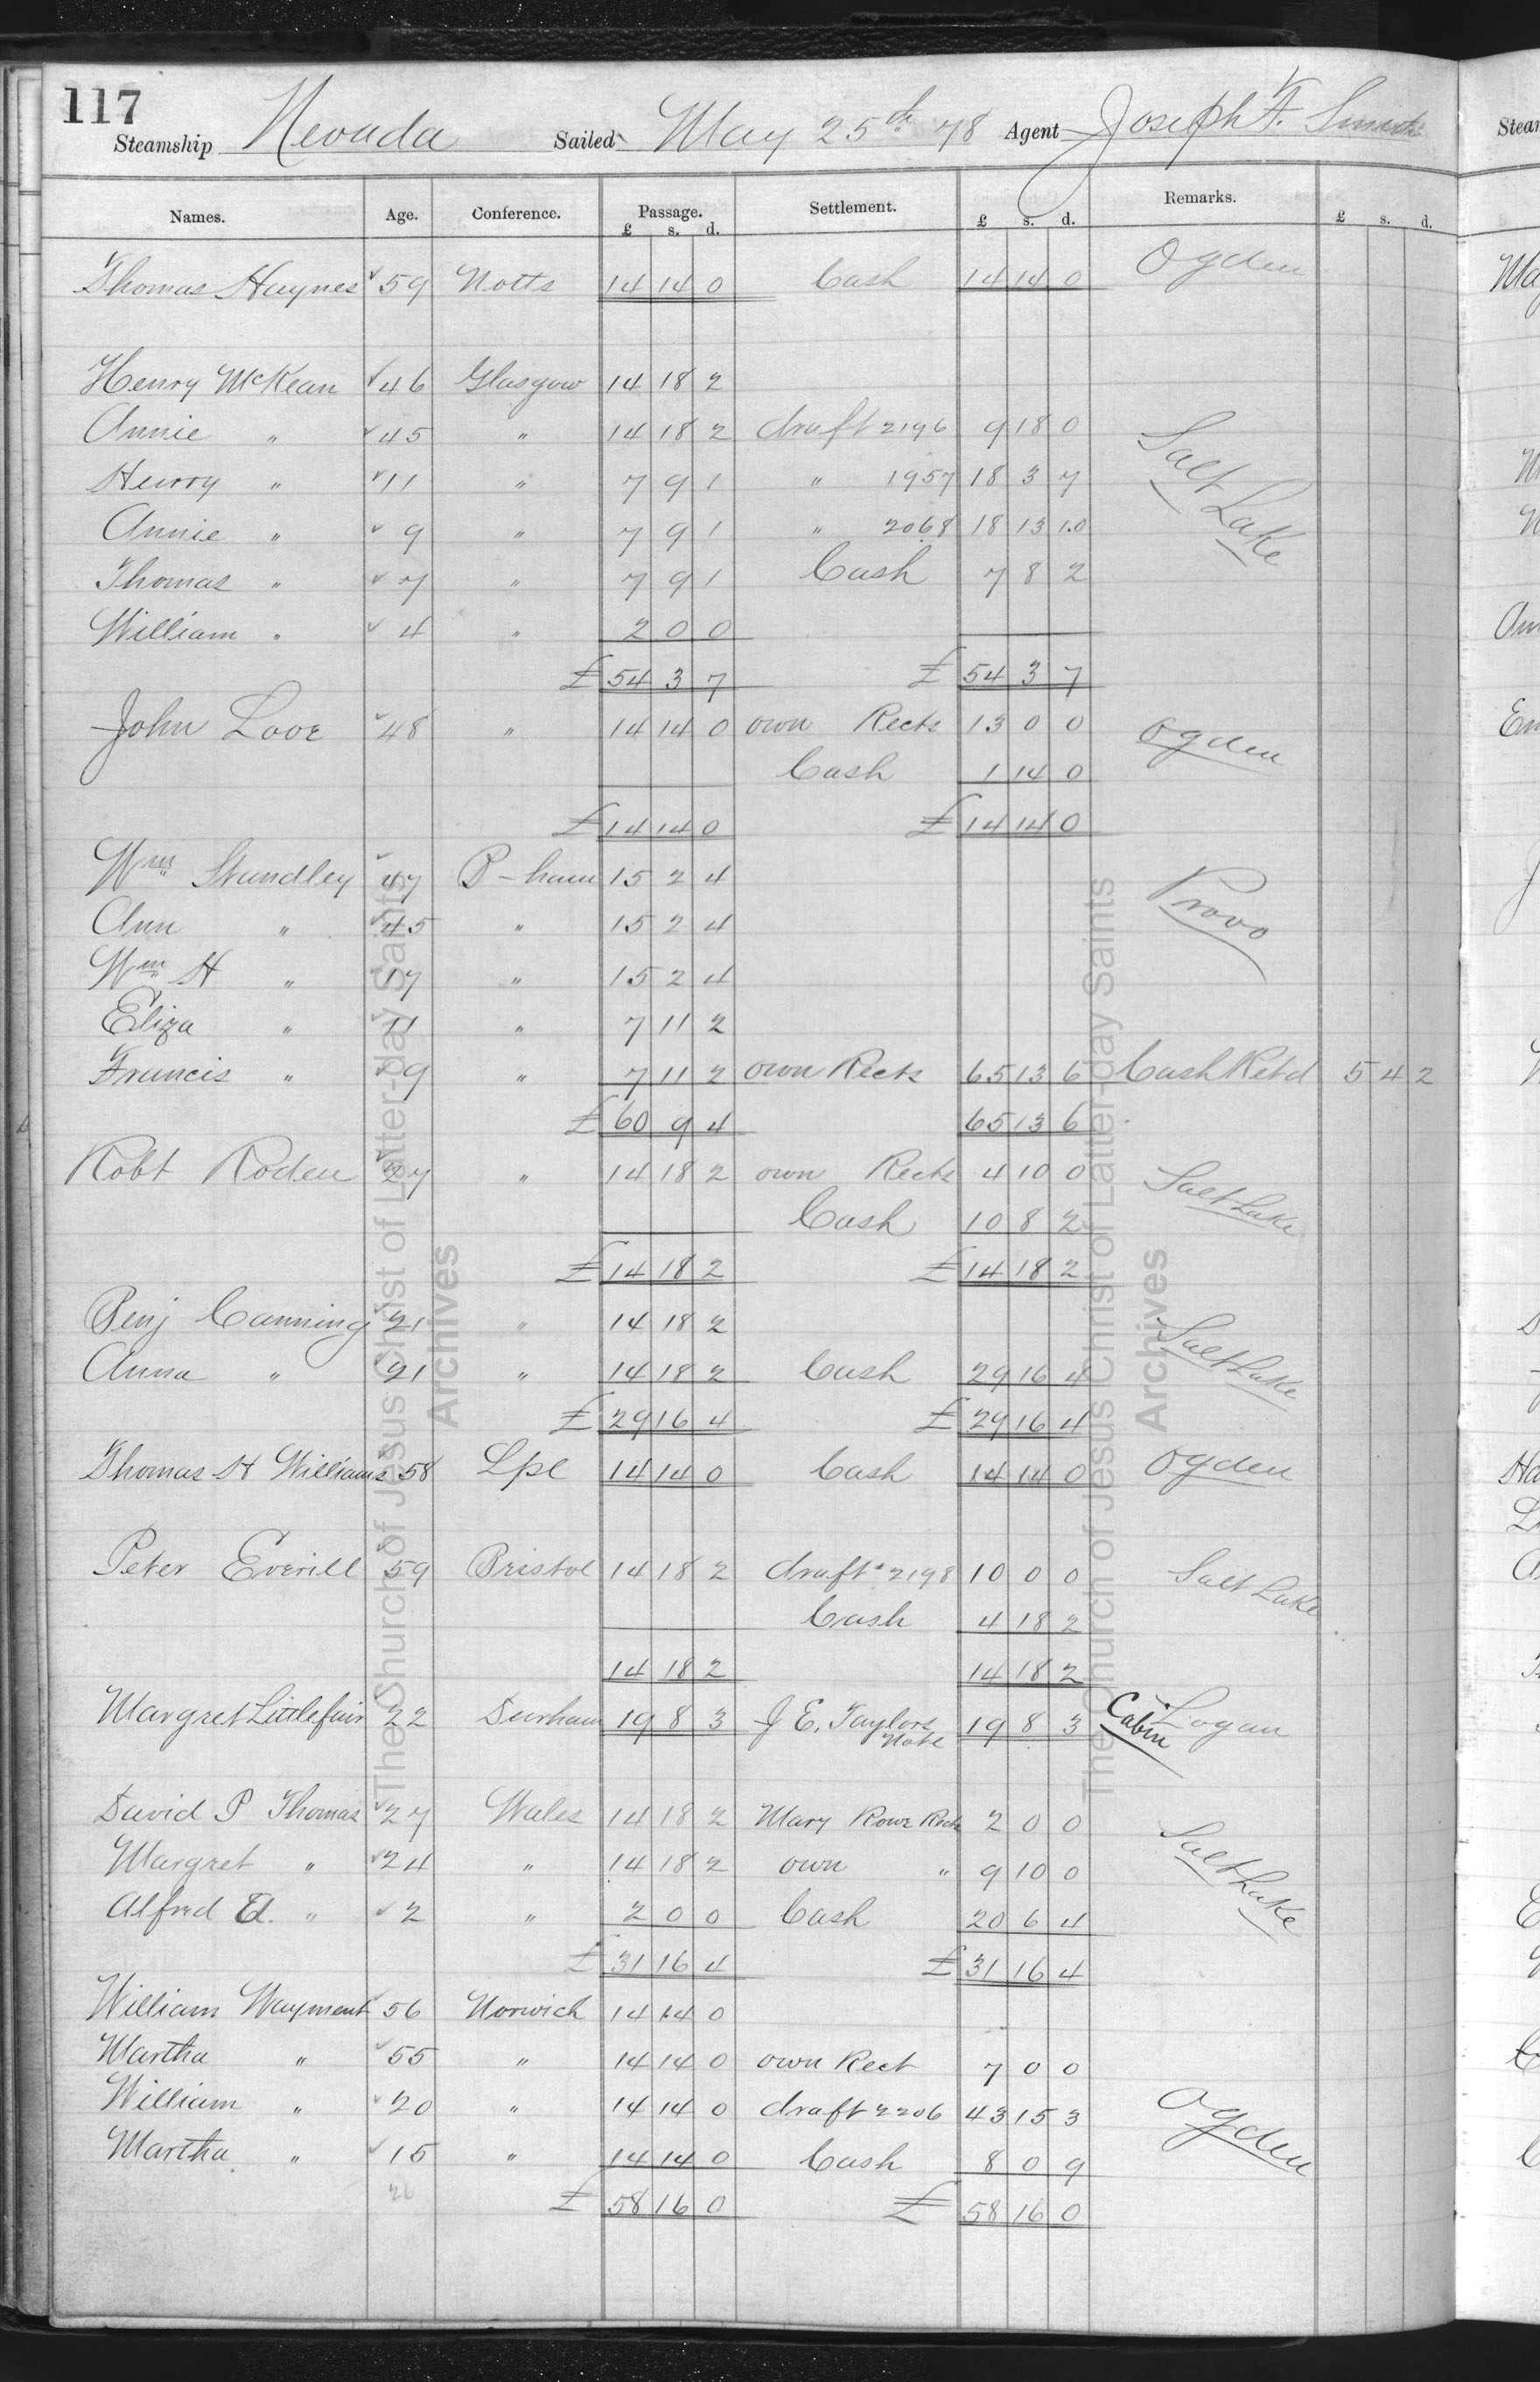 117
Steamship Nevada Sailed May 25th 78 Agent Joseph F. Smith
Names. Age. Conference. Passage. Settlement. £ s. d. Remarks. £ s. d.
£ s. d.
Thomas Haynes 59 Notts 14 14 0 Cash 14 14 0 Ogden
Henry McKean 46 Glasgow 14 18 2
Annie " 45 " 14 18 2 draft 2196 9 18 0 Salt Lake
Henry " 11 " 7 9 1 " 1957 18 3 7
Annie " 9 " 7 9 1 " 2068 18 13 10
Thomas " 7 " 7 9 1 Cash 7 8 2
William " 4 " 2 0 0
£ 54 3 7 £ 54 3 7
John Love 48 " 14 14 0 own Rects 13 0 0 Ogden
Cash 1 14 0
£ 14 14 0 £ 14 14 0
Wm Standley 47 B-ham 15 2 4 Provo
Ann " 45 " 15 2 4
Wm H " 17 " 15 2 4
Eliza " 11 " 7 11 2
Francis " 9 " 7 11 2 own Rects 65 13 6 Cash Retd 5 4 2
£ 60 9 4 65 13 6
Robt Roden 27 " 14 18 2 own Rects 4 10 0 Salt Lake
Cash 10 8 2
£ 14 18 2 £ 14 18 2
Benj Canning 21 " 14 18 2 Salt Lake
Anna " 21 " 14 18 2 Cash 29 16 4
£ 29 16 4 £ 29 16 4
Thomas H Williams 58 Lpl 14 14 0 Cash 14 14 0 Ogden
Peter Everill 59 Bristol 14 18 2 draft 2198 10 0 0 Salt Lake
Cash 4 18 2
14 18 2 14 18 2
Margret Littlefair 22 Durham 19 8 3 J E. Taylors Note 19 8 3 Cabin Logan
David P Thomas 27 Wales 14 18 2 Mary Rowe Rect 2 0 0 Salt Lake
Margret " 24 " 14 18 2 own " 9 10 0
Alfred E. " 2 " 2 0 0 Cash 20 6 4
£ 31 16 4 £ 31 16 4
William Wayment 56 Norwich 14 14 0
Martha " 55 " 14 14 0 own Rect 7 0 0
William " 20 " 14 14 0 draft 2206 43 15 3 Ogden
Martha " 15 " 14 14 0 Cash 8 0 9
26 £ 58 16 0 £ 58 16 0
The Church of Jesus Christ of Latter-day Saints
Archives
The Church of Jesus Christ of Latter-day Saints
Archives